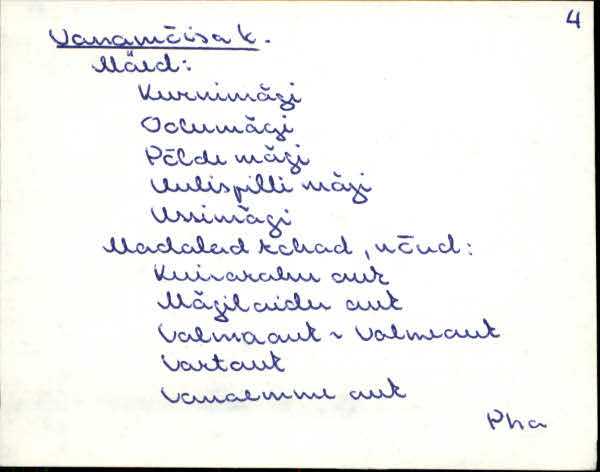 4
Vanamõisa k.
Mäed:
Kurnimägi
Odumägi
Põldemägi
Uulispilli mägi
Ussimägi
Madalad kohad, nõud:
Kuivarahu auk
Mägilaidu auk
Valmaauk ~ Valmeauk
Vartauk
Vanaemme auk
Pha